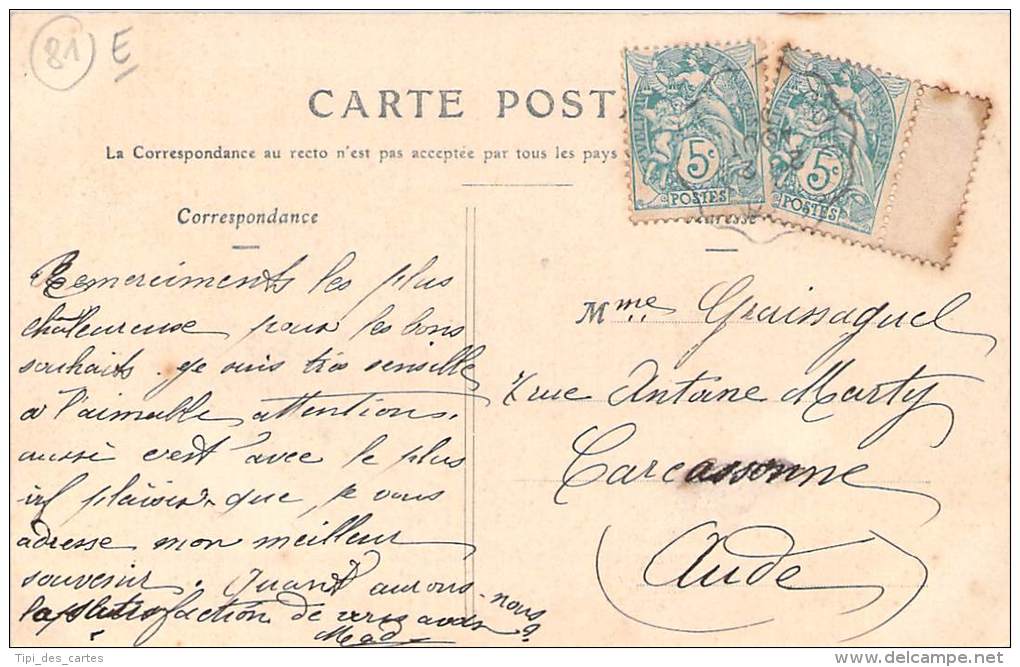 81 E
CARTE POST
La Correspondance au recto n'est pas acceptée par tous les pays
5c
POSTES
5c
POSTES
Correspondance
Remerciments les plus
châleureuse pour les bons
souhaits. Je suis très sensille
a l'aimable attentions.
aussi c'est avec le plus
plaisir que je vous
adresse mon meilleur
souvenir. Quant aurons-nous
la satisfaction de
Mad
Mme Graissaguel
7 rue Antane Marty
Carcassonne
(Aude)
Tipi_des_cartes
www.delcampe.net